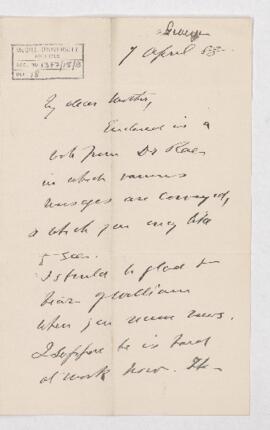 George
7 April 83.
MCGILL UNIVERSITY
ARCHIVES
ACC. NO. 1377/18/3
REF. 18
My dear Mother,
Enclosed is a
note from Dr Rae
in which various
messages are conveyed,
& which you may like
to see.
I should be glad to
hear of William
when you receive news.
I suppose he is hard
at work now. The